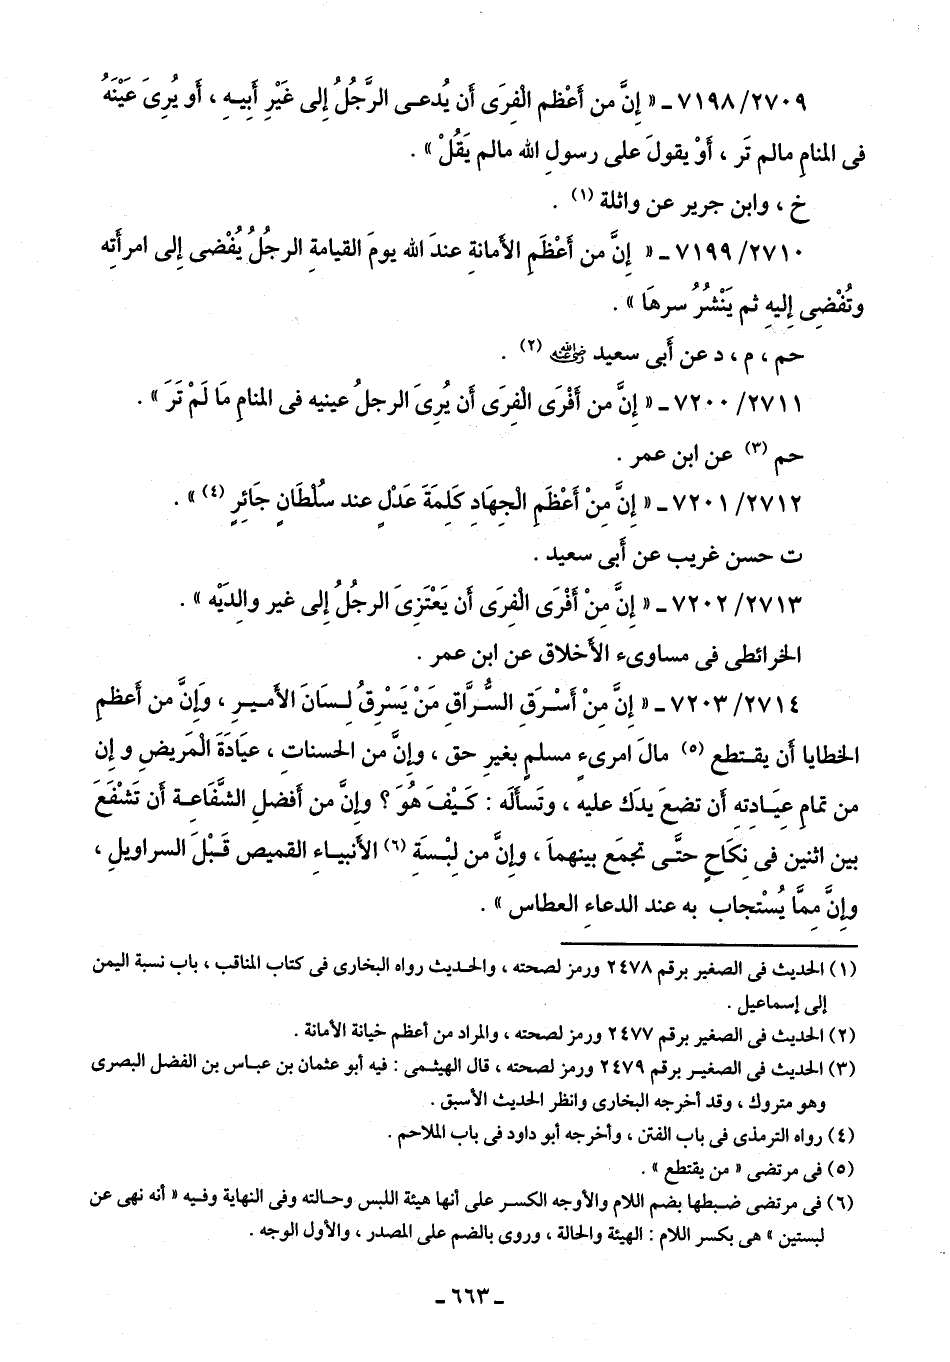 ٢٧٠٩/ ٧١٩٨ ـ « إِنَّ من أَعْظم الْفِرَى أَن يُدعـى الرَّجُلُ إِلى غَيْرِ أَبِيـهِ ، أَو يُرِىَ عَيْنَهُ
فى المنامِ مالم تَر ، أَوْ يقولَ على رسولِ الله مالم يَقُلْ » .
خ ، وابن جرير عن واثلة (١) .
٢٧١٠/ ٧١٩٩ ـ « إِنَّ من أَعْظَمِ الأَمانةِ عندَ الله يومَ القيامةِ الرجلُ يُفْضى إِلى امرأَتِه
وتُفْضِى إِليهِ ثم يَنْشُرُ سرهَا » .
حم ، م ، د عن أَبى سعيد رضي الله عنه (٢) .
٢٧١١/ ٧٢٠٠ ـ « إِنَّ من أَفْرَى الْفِرَى أَن يُرِىَ الرجلُ عينيه فى المنامِ مَا لَمْ تَرَ » .
حم (٣) عن ابن عمر .
٢٧١٢/ ٧٢٠١ ـ « إِنَّ مِنْ أَعْظَمِ الْجِهَادِ كَلِمَةَ عَدْلٍ عند سُلْطَانٍ جَائِرٍ (٤) » .
ت حسن غريب عن أَبى سعيد .
٢٧١٣/ ٧٢٠٢ ـ « إِنَّ مِنْ أَفْرَى الْفِرَى أَن يَعْتَزِىَ الرجُلُ إِلى غير والدَيْه » .
الخرائطى فى مساوىء الأَخلاق عن ابن عمر .
٢٧١٤/ ٧٢٠٣ ـ « إِنَّ مِنْ أَسْرَقِ السُّرَّاقِ مَنْ يَسْرِقُ لِسَانَ الأَميـرِ ، وَإِنَّ من أَعظمِ
الخطايا أَن يقـتطع (٥) مالَ امرىءٍ مسلمٍ بغيرِ حق ، وإِنَّ من الحسنات ، عيَادَةَ الْمَريضِ و إِن
من تمامِ عيَـادَتِهِ أَن تضعَ يدَك عليه ، وتَسأَله : كَيْفَ هُوَ ؟ وإِنَّ من أَفضلِ الشَّفاعَـةِ أَن تَشْفَعَ
بين اثنين فى نِكَاحٍ حتَّـى تجمَع بينهمـا ، وإِنَّ من لِبْسَةِ (٦) الأَنبيـاءِ القميصِ قَبْلَ السراويلِ ،
وإِنَّ مِمَّا يُسْتجاب به عند الدعاءِ العطاس » .
(١) الحديث فى الصغير برقم ٢٤٧٨ ورمز لصحته ، والحـديث رواه البخارى فى كتاب المناقب ، باب نسبة اليمن
إلى إسماعيل .
(٢) الحديث فى الصغير برقم ٢٤٧٧ ورمز لصحته ، والمراد من أعظم خيانة الأمانة .
(٣) الحديث فى الصغيـر برقم ٢٤٧٩ ورمز لصحته ، قال الهيثـمى : فيه أبو عثمان بن عبـاس بن الفضل البصرى
وهو متروك ، وقد أخرجه البخارى وانظر الحديث الأسبق .
(٤) رواه الترمذى فى باب الفتن ، وأخرجه أبو داود فى باب الملاحم .
(٥) فى مرتضى « من يقتطع » .
(٦) فى مرتضى ضـبطها بضم اللام والأوجه الكسر على أنها هيئة اللبس وحـالته وفى النهاية وفيـه « أنه نهى عن
لبستين » هى بكسر اللام : الهيئة والحالة ، وروى بالضم على المصدر ، والأول الوجه .
ـ ٦٦٣ ـ